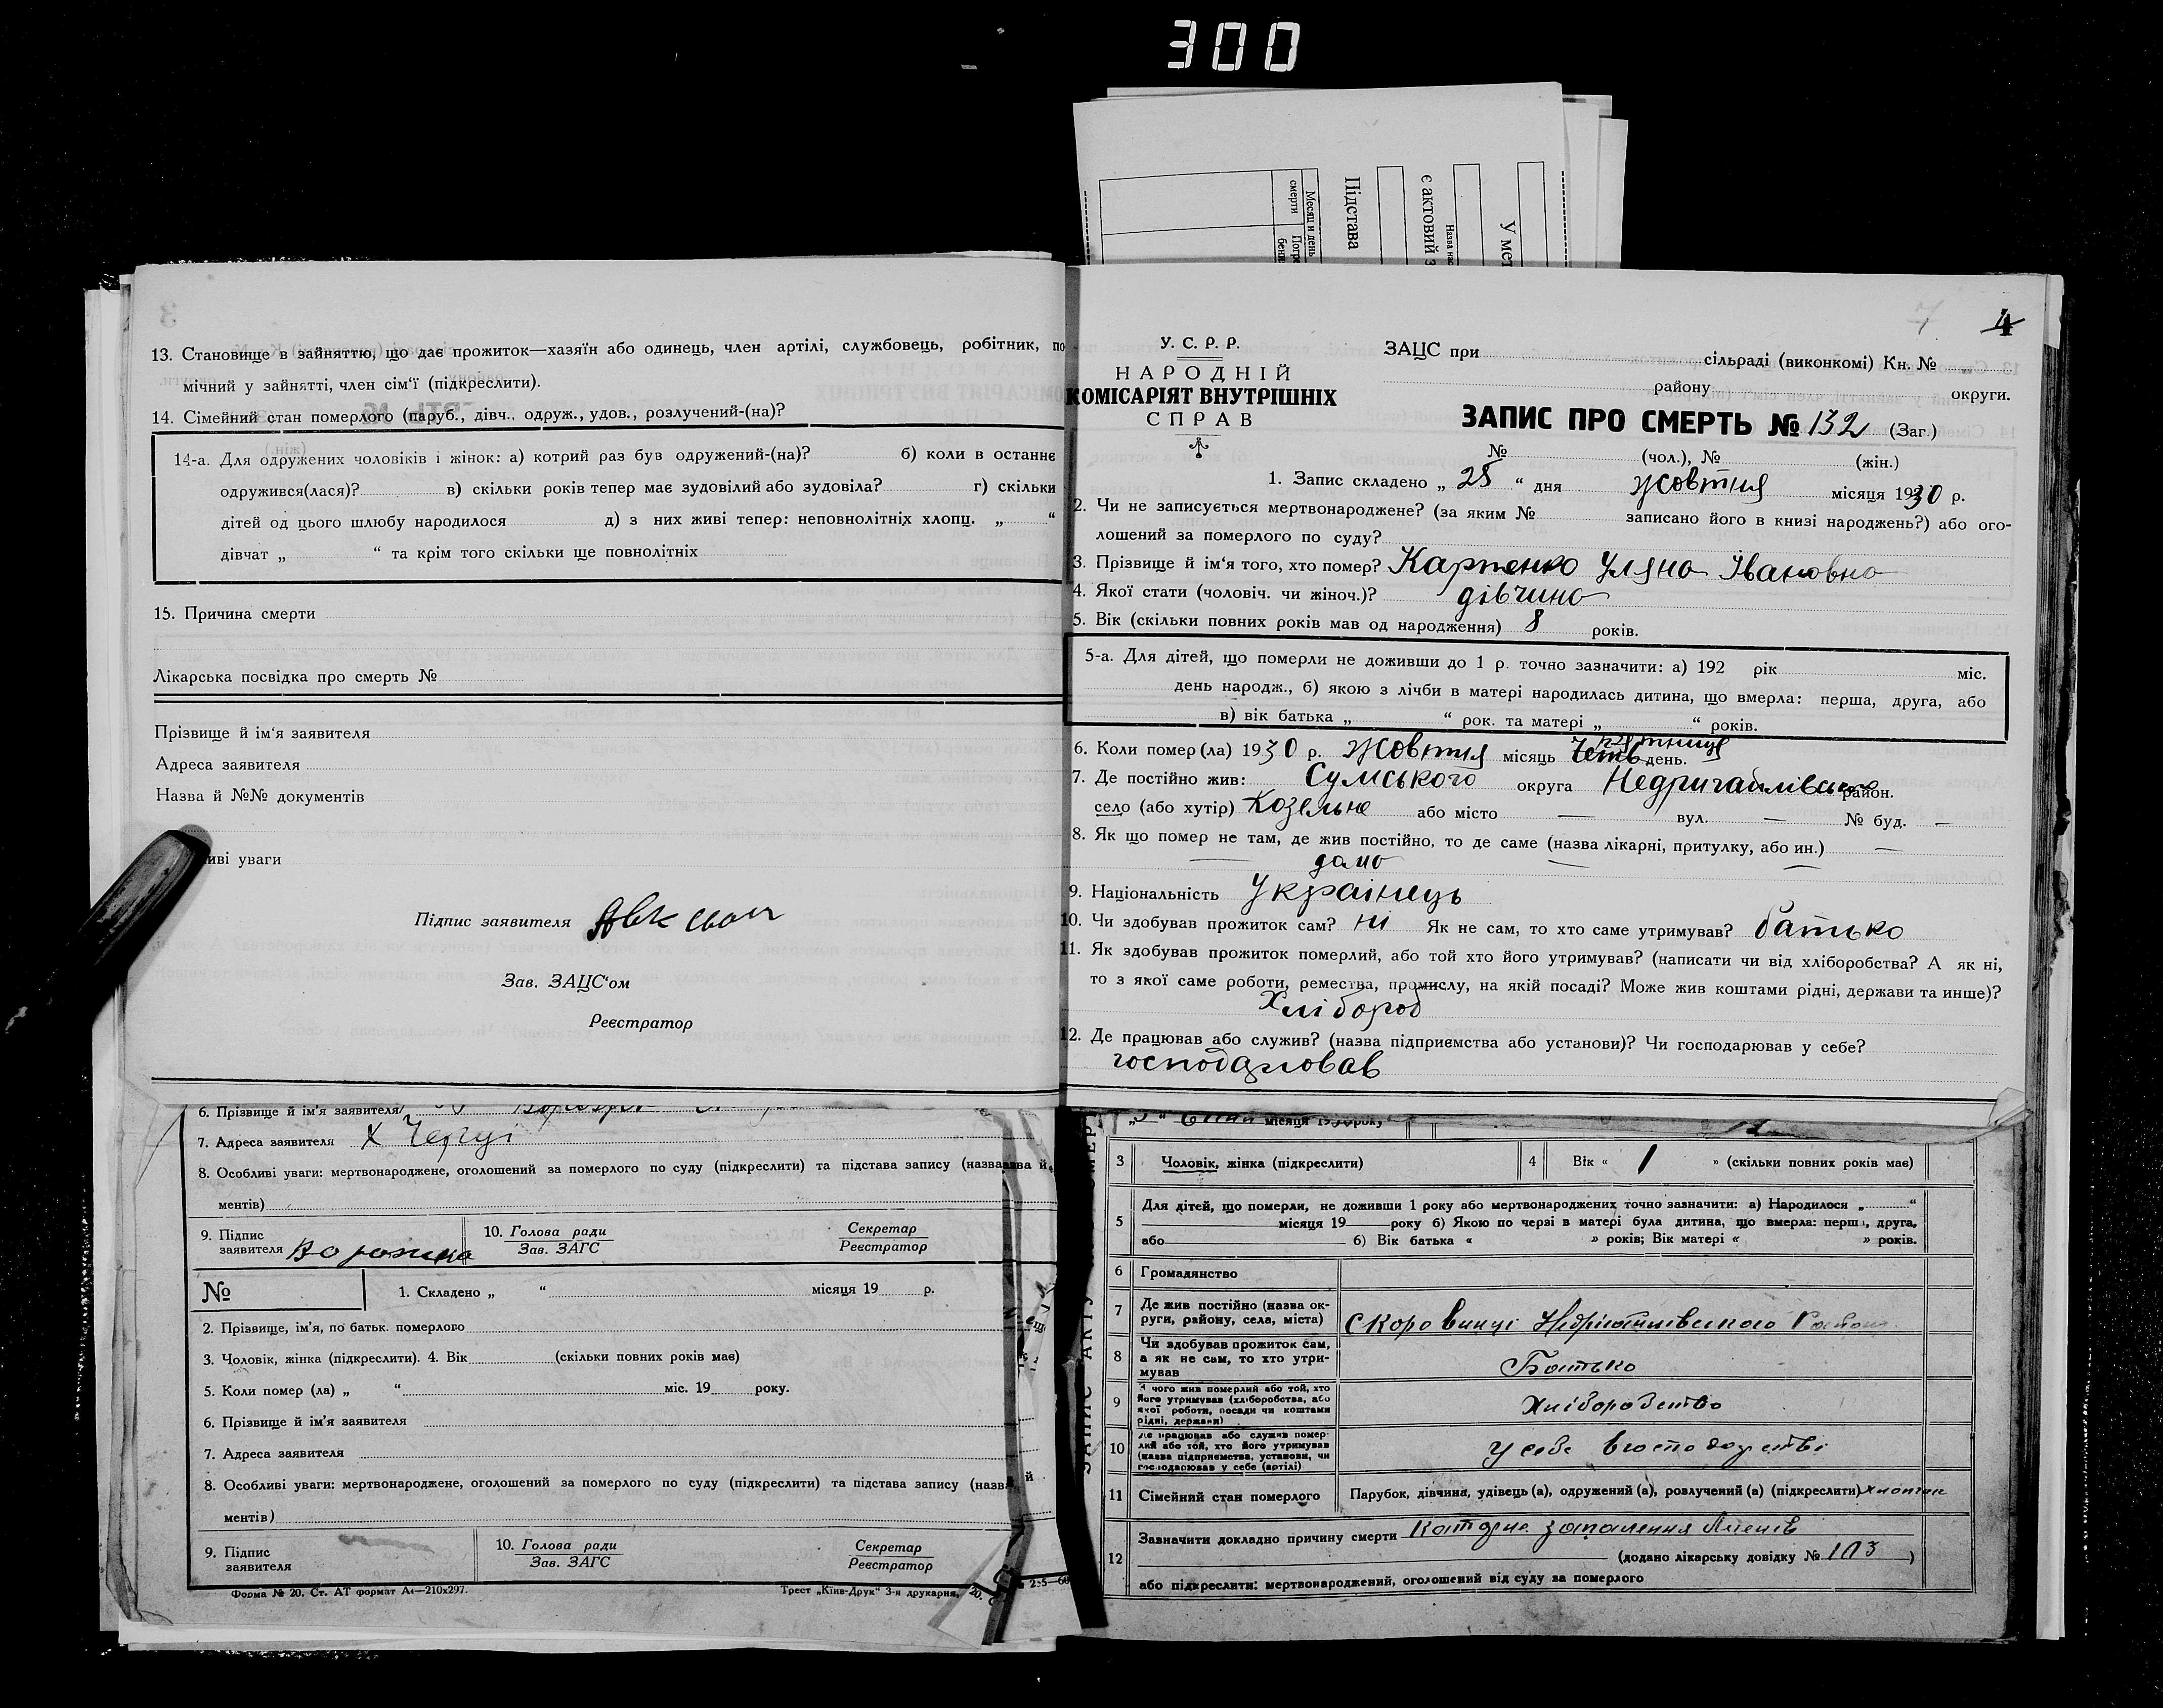 300
Месяц и день
смерти
Підстава
4
13. Становище в зайняттю, що дає прожиток—хазяїн або одинець, член артілі, службовець, робітник, по
мічний у зайнятті, член сім'ї (підкреслити).
14. Сімейний стан померлого (паруб., дівч., одруж., удов., розлучений-(на)?
14-а. Для одружених чоловіків і жінок: а) котрий раз був одружений-(на)? б) коли в останнє
одружився(лася)? в) скільки років тепер має зудовілий або зудовіла? г) скільки
дітей од цього шлюбу народилося д) з них живі тепер: неповнолітніх хлопц. „ “
дівчат „ “ та крім того скільки ще повнолітніх
15. Причина смерти
Лікарська посвідка про смерть №
Прізвище й ім'я заявителя
Адреса заявителя
Назва й №№ документів
иві уваги
Підпис заявителя
Зав. ЗАЦС'ом
Реєстратор
У. С. Р. Р.
НАРОДНІЙ
КОМІСАРІЯТ ВНУТРІШНІХ
СПРАВ
ЗАЦС при сільраді (виконкомі) Кн. №
району округи.
ЗАПИС ПРО СМЕРТЬ № 132 (Заг.)
№ (чол.), № (жін.)
1. Запис складено „ 28 “ дня жовтня місяця 1930 р.
2. Чи не записується мертвонароджене? (за яким № записано його в книзі народжень?) або ого-
лошений за померлого по суду?
3. Прізвище й ім'я того, хто помер? Карпенко Уляна Івановна
4. Якої стати (чоловіч. чи жіноч.)? дівчина
5. Вік (скільки повних років мав од народження) 8 років.
5-а. Для дітей, що померли не доживши до 1 р. точно зазначити: а) 192 рік міс.
день народж., б) якою з лічби в матері народилась дитина, що вмерла: перша, друга, або
в) вік батька „ “ рок. та матері „ “ років.
6. Коли помер(ла) 1930 р. жовтня місяць пятниця день.
7. Де постійно жив: Сумського округа Недригайлівсько район.
село (або хутір) Козельне або місто — вул. — № буд. —
8. Як що помер не там, де жив постійно, то де саме (назва лікарні, притулку, або ин.) —
9. Національність Українець
10. Чи здобував прожиток сам? ні Як не сам, то хто саме утримував? батько
11. Як здобував прожиток померлий, або той хто його утримував? (написати чи від хліборобства? А як ні,
то з якої саме роботи, ремества, промислу, на якій посаді? Може жив коштами рідні, держави та инше)?
Хлібороб
12. Де працював або служив? (назва підприємства або установи)? Чи господарював у себе?
господарював
6. Прізвище й ім'я заявителя
7. Адреса заявителя х
8. Особливі уваги: мертвонароджене, оголошений за померлого по суду (підкреслити) та підстава запису (назва й
ментів)
9. Підпис
заявителя
10. Голова ради
Зав. ЗАГС
Секретар
Реєстратор
№ 1. Складено „ “ місяця 19 р.
2. Прізвище, ім'я, по батьк. померлого
3. Чоловік, жінка (підкреслити). 4. Вік (скільки повних років має)
5. Коли помер (ла) „ “ міс. 19 року.
6. Прізвище й ім'я заявителя
7. Адреса заявителя
8. Особливі уваги: мертвонароджене, оголошений за померлого по суду (підкреслити) та підстава запису (назв й
ментів)
9. Підпис
заявителя
10. Голова ради
Зав. ЗАГС
Секретар
Реєстратор
Форма № 20. Ст. АТ формат А4—210х297. Трест „Київ-Друк“ 3-я друкарня.
місяця 1930 року
3 Чоловік, жінка (підкреслити) 4 Вік « 1 » (скільки повних років має)
5 Для дітей, що померли, не доживши 1 року або мертвонароджених точно зазначити: а) Народилося „ “
місяця 19 року б) Якою по черзі в матері була дитина, що вмерла: перша, друга,
або б) Вік батька « » років; Вік матері « » років.
6 Громадянство
7 Де жив постійно (назва ок-
руги, району, села, міста) Недрігайлівского
8 Чи здобував прожиток сам,
а як не сам, то хто утри-
мував Батько
9 З чого жив померлий або той, хто
його утримував (хліборобства, або
якої роботи, посади чи коштами
рідні, держави) Хліборобство
10 Де працював або служив помер
лий або той, хто його утримував
(назва підприємства, установи, чи
господарював у себе (артілі) У себе в господарстві
11 Сімейний стан померлого Парубок, дівчина, удівець (а), одружений (а), розлучений (а) (підкреслити) хлопчик
12 Зазначити докладно причину смерти запалення
(додано лікарську довідку № 103 )
або підкреслити: мертвонароджений, оголошений від суду за померлого